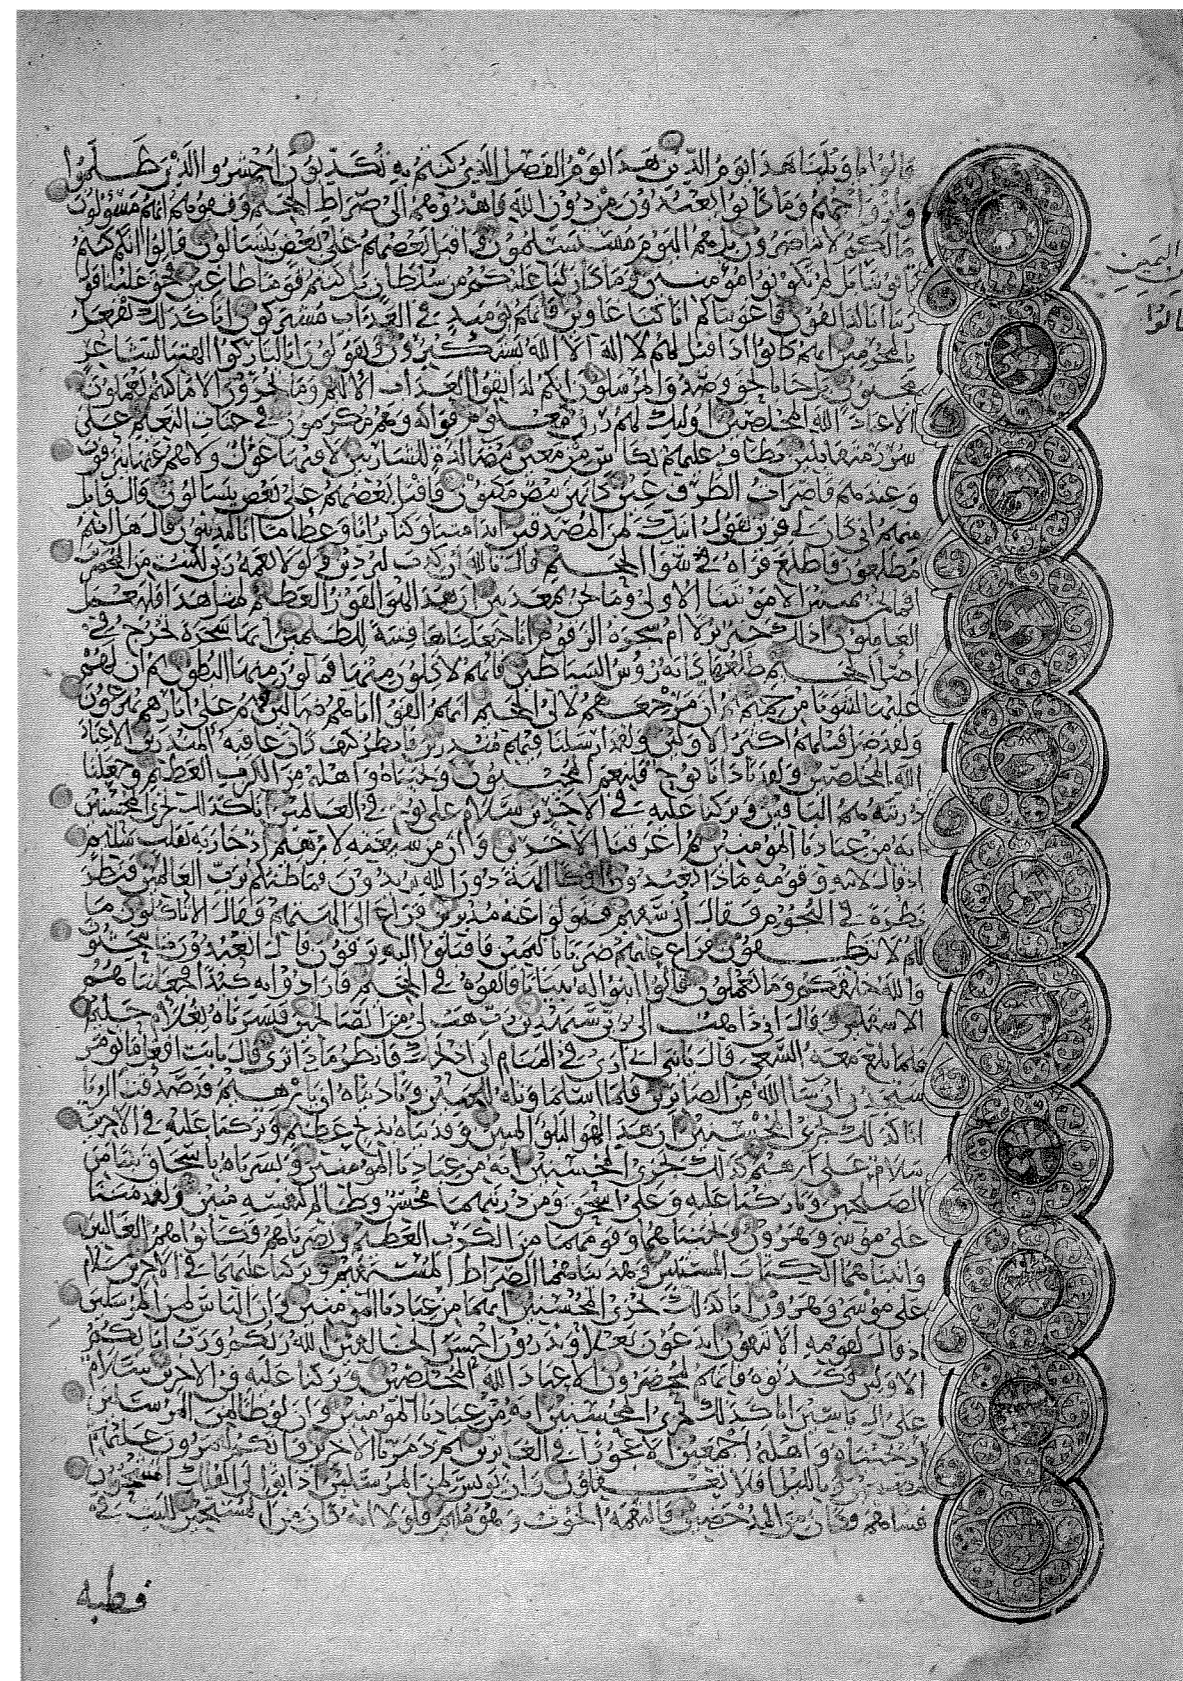 وقالوا يا ويلنا هذا يوم الدين هذا يوم الفصل الذي كنتم به تكذبون احشروا الذين ظلموا
وازواجهم وما كانوا يعبدون من دون الله فاهدوهم الى صراط الجحيم وقفوهم انهم مسؤلون
ما لكم لا تناصرون بل هم اليوم مستسلمون واقبل بعضهم على بعض يتسالون قالوا انكم كنتم
تاتوننا بل لم تكونوا مؤمنين وما كان لنا عليكم من سلطان بل كنتم قوما طاغين فحق علينا قول
ربنا انا لذائقون فاغويناكم انا كنا غاوين فانهم يوميذ في العذاب مشتركون انا كذلك نفعل
بالمجرمين انهم كانوا اذا قيل لهم لا اله الا الله يستكبرون ويقولون اينا لتاركوا الهتنا لشاعر
مجنون بل جا بالحق وصدق المرسلين انكم لذايقوا العذاب الاليم وما تجزون الا ما كنتم تعملون
الا عباد الله المخلصين اوليك لهم رزق معلوم فواكه وهم مكرمون في جنات النعيم على
سرر متقابلين يطاف عليهم بكاس من معين بيضا لذة للشاربين لا فيها غول ولا هم عنها ينزفون
وعندهم قاصرات الطرف عين كانهن بيض مكنون فاقبل بعضهم على بعض يتسالون قال قايل
منهم اني كان لي قرين يقول اينك لمن المصدقين ايذا متنا وكنا ترابا وعظاما اينا لمدينون قال هل انتم
مطلعون فاطلع فراه في سوا الجحيم قال تالله ان كدت لتردين ولولا نعمة ربي لكنت من المحضرين
افما نحن بميتين الا موتتنا الاولى وما نحن بمعذبين ان هذا لهو الفوز العظيم لمثل هذا فليعمل
العاملون اذلك خير نزلا ام شجرة الزقوم انا جعلناها فتنة للظلمين انها شجرة تخرج في
اصل الجحيم طلعها كانه رؤس الشياطين فانهم لاكلون منها فمالون منها البطون ثم ان لهم
عليها لشوبا من حميم ثم ان مرجعهم لالى الجحيم انهم الفوا اباهم ضالين فهم على اثارهم يهرعون
ولقد ضل قبلهم اكثر الاولين ولقد ارسلنا فيهم منذرين فانظر كيف كان عاقبة المنذرين الا عباد
الله المخلصين ولقد نادانا نوح فلنعم المجيبون ونجيناه واهله من الكرب العظيم وجعلنا
ذريته هم الباقين وتركنا عليه في الاخرين سلام على نوح في العالمين انا كذلك نجزي المحسنين
انه من عبادنا المؤمنين ثم اغرقنا الاخرين وان من شيعته لابرهيم اذ جا ربه بقلب سليم
اذ قال لابيه وقومه ماذا تعبدون ايفكا الهة دون الله تريدون فما ظنكم برب العالمين فنظر
نظرة في النجوم فقال اني سقيم فتولوا عنه مدبرين فراغ الى الهتهم فقال الا تاكلون ما
لكم لا تنطقون فراغ عليهم ضربا باليمين فاقبلوا اليه يزفون قال اتعبدون ما تنحتون
والله خلقكم وما تعملون قالوا ابنوا له بنيانا فالقوه في الجحيم فارادوا به كيدا فجعلناهم
الاسفلين وقال اني ذاهب الى ربي سيهدين رب هب لي من الصالحين فبشرناه بغلام حليم
فلما بلغ معه السعي قال يا بني اني ارى في المنام اني اذبحك فانظر ماذا ترى قال يا ابت افعل ما تؤمر
ستجدني ان شا الله من الصابرين فلما اسلما وتله للجبين وناديناه ان يا ابرهيم قد صدقت الرؤيا
انا كذلك نجزي المحسنين ان هذا لهو البلؤا المبين وفديناه بذبح عظيم وتركنا عليه في الاخرين
سلام على ابرهيم كذلك نجزي المحسنين انه من عبادنا المؤمنين وبشرناه باسحاق نبيا من
الصلحين وباركنا عليه وعلى اسحق ومن ذريتهما محسن وظالم لنفسه مبين ولقد مننا
على موسى وهرون ونجيناهما وقومهما من الكرب العظيم ونصرناهم فكانوا هم الغالبين
واتيناهما الكتاب المستبين وهديناهما الصراط المستقيم وتركنا عليهما في الاخرين سلام
على موسى وهرون انا كذلك نجزي المحسنين انهما من عبادنا المؤمنين وان الياس لمن المرسلين
اذ قال لقومه الا تتقون اتدعون بعلا وتذرون احسن الخالقين الله ربكم ورب ابايكم
الاولين فكذبوه فانهم لمحضرون الا عباد الله المخلصين وتركنا عليه في الاخرين سلام
على ال ياسين انا كذلك نجزي المحسنين انه من عبادنا المؤمنين وان لوطا لمن المرسلين
اذ نجيناه واهله اجمعين الا عجوزا في الغابرين ثم دمرنا الاخرين وانكم لتمرون عليهم
مصبحين وبالليل افلا تعقلون وان يونس لمن المرسلين اذ ابق الى الفلك المشحون
فساهم فكان من المدحضين فالتقمه الحوت وهو مليم فلولا انه كان من المسبحين للبث في
في بطنه
اليمين
قالوا